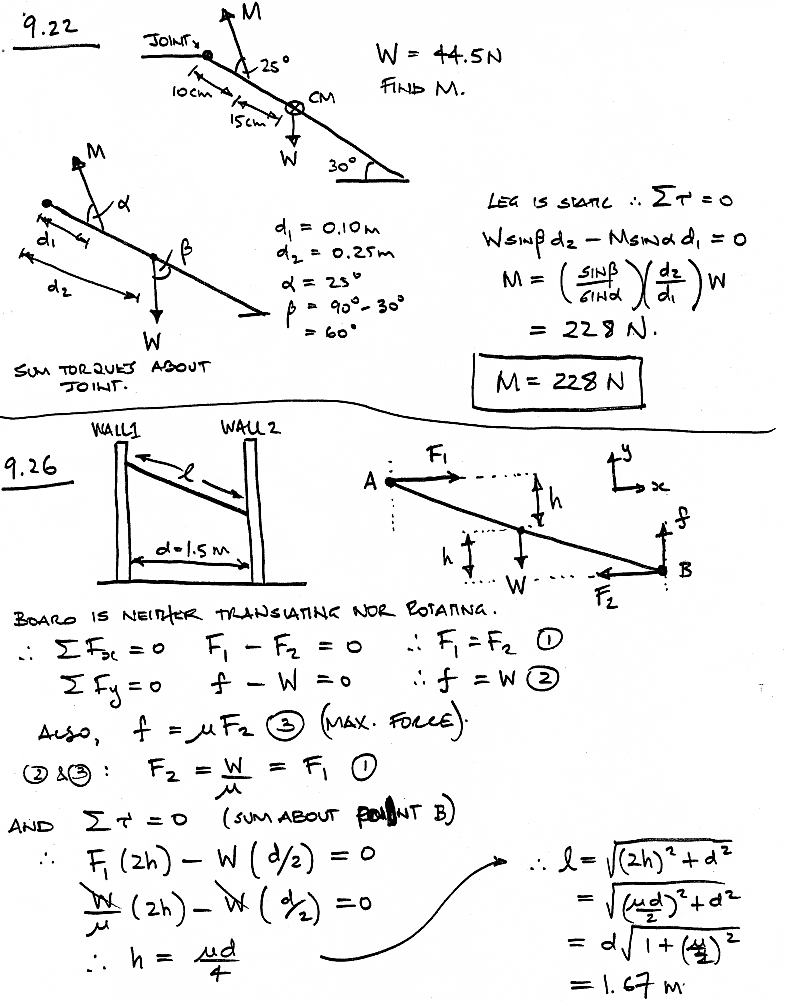 9.22
M
JOINT
25°
10cm
15cm
CM
W
30°
W = 44.5N
FIND M.
M
α
d₁
d₂
β
W
d₁ = 0.10m
d₂ = 0.25m
α = 25°
β = 90° - 30°
= 60°
SUM TORQUES ABOUT
JOINT.
LEG IS STATIC ∴ Στ = 0
W sinβ d₂ - M sinα d₁ = 0
M = (sinβ/sinα)(d₂/d₁) W
= 228 N.
M = 228 N
9.26
WALL1
WALL 2
l
d=1.5m
A
F₁
h
h
W
F₂
f
B
y
x
BOARD IS NEITHER TRANSLATING NOR ROTATING.
∴ ΣFx = 0 F₁ - F₂ = 0 ∴ F₁ = F₂ ①
ΣFy = 0 f - W = 0 ∴ f = W ②
ALSO, f = μF₂ ③ (MAX. FORCE).
② & ③ : F₂ = W/μ = F₁ ①
AND Στ = 0 (SUM ABOUT POINT B)
∴ F₁(2h) - W(d/2) = 0
W/μ (2h) - W(d/2) = 0
∴ h = μd/4
∴ l = √((2h)² + d²)
= √((μd/2)² + d²)
= d√(1 + (μ/2)²)
= 1.67 m